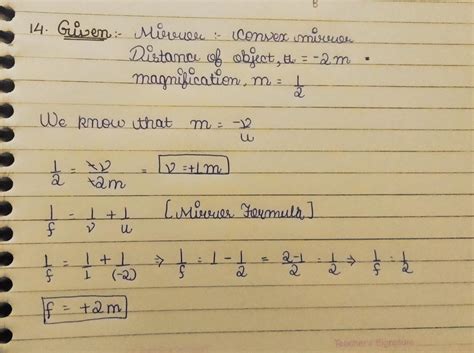 14. Given :- Mirror :- Convex mirror
Distance of object, u = -2m .
magnification, m = 1/2
We know that m = -v/u
1/2 = -v/-2m = v = +1m
1/f = 1/v + 1/u [Mirror Formula]
1/f = 1/1 + 1/(-2) ⇒ 1/f = 1 - 1/2 = 2-1/2 = 1/2 ⇒ 1/f = 1/2
f = +2m
Teacher's Signature